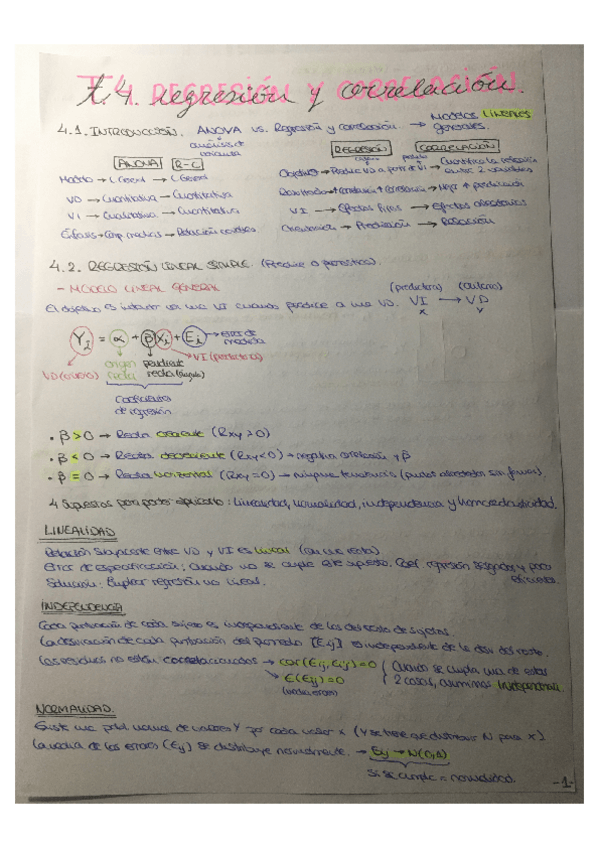 T.4. REGRESIÓN Y CORRELACIÓN.
t.4. regresión y correlación.
4.1. INTRODUCCIÓN. ANOVA vs. Regresión y correlación → Modelos LINEALES generales.
análisis de varianza
ANOVA R-C
REGRESIÓN CORRELACIÓN
Modelo → L General → L General
Objetivo → Predice VD a partir de VI → Cuantifica la relación entre 2 variables
VD → Cuantitativa → Cuantitativa
VI → Cualitativa → Cuantitativa
VI → Efectos fijos → Efectos aleatorios
Énfasis → Comp. medias → Relación
→ Predicción → Relación
4.2. REGRESIÓN LINEAL SIMPLE. (Predice o pronostica).
- MODELO LINEAL GENERAL
(predictora) (criterio)
El objetivo es VI cuando predice a una VD. VI → VD
x y
Yi = α + βXi + Ei → error de medida
VI (predictora)
VD (criterio) origen recta pendiente recta (ángulo)
Coeficientes de regresión
• β > 0 → Recta creciente (Rxy > 0)
• β < 0 → Recta decreciente (Rxy < 0) → negativa correlación y β
• β = 0 → Recta horizontal (Rxy = 0) → ninguna tendencia (puntos alrededor sin forma).
4 supuestos para poder aplicarlo: Linealidad, normalidad, independencia y homocedasticidad.
LINEALIDAD
Relación subyacente entre VD y VI es lineal (con una recta)
Error de especificación: Cuando no se cumple este supuesto. Coef. regresión sesgados y poco eficientes.
Solución: Emplear regresión no lineal.
INDEPENDENCIA
Cada puntuación de cada sujeto es independiente de las del resto de sujetos.
La desviación de cada puntuación del promedio [Eij] es independiente de la desv. del resto.
Los residuos no están correlacionados → cor(Eij, Eij) = 0 Cuando se cumpla una de estas
→ E(Eij) = 0 2 cosas, asumimos independencia.
(media errores)
NORMALIDAD.
Existe una pobl. normal de valores Y por cada valor X (Y se tiene que distribuir N para X)
La media de los errores (Eij) se distribuye normalmente. → Eij → N(0,
Si se cumple = normalidad.
-1-